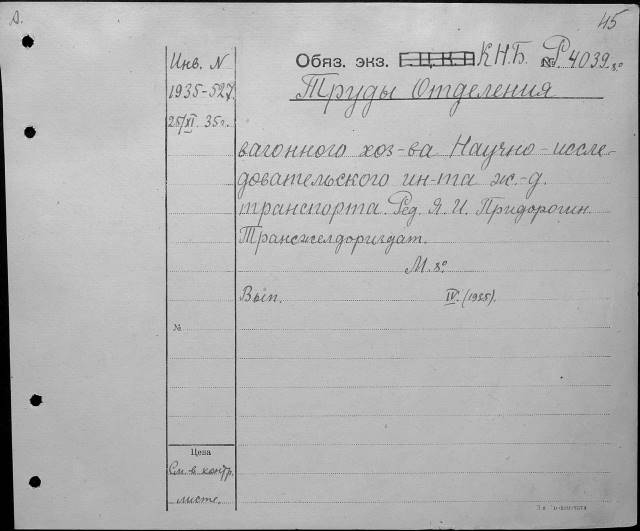 D.
45
Инв. N
1935-527
25/XI 35г.
Обяз. экз. Г.Ц.К.П К.Н.Б. № Р4039.8°
Труды Отделения
вагонного хоз-ва Научно-иссле-
довательского ин-та ж.-д.
транспорта. Ред. Я. И. Придорогин.
Трансжелдориздат.
М. 8°
Вып. IV. (1935).
№
Цена
См. в контр.
листе.